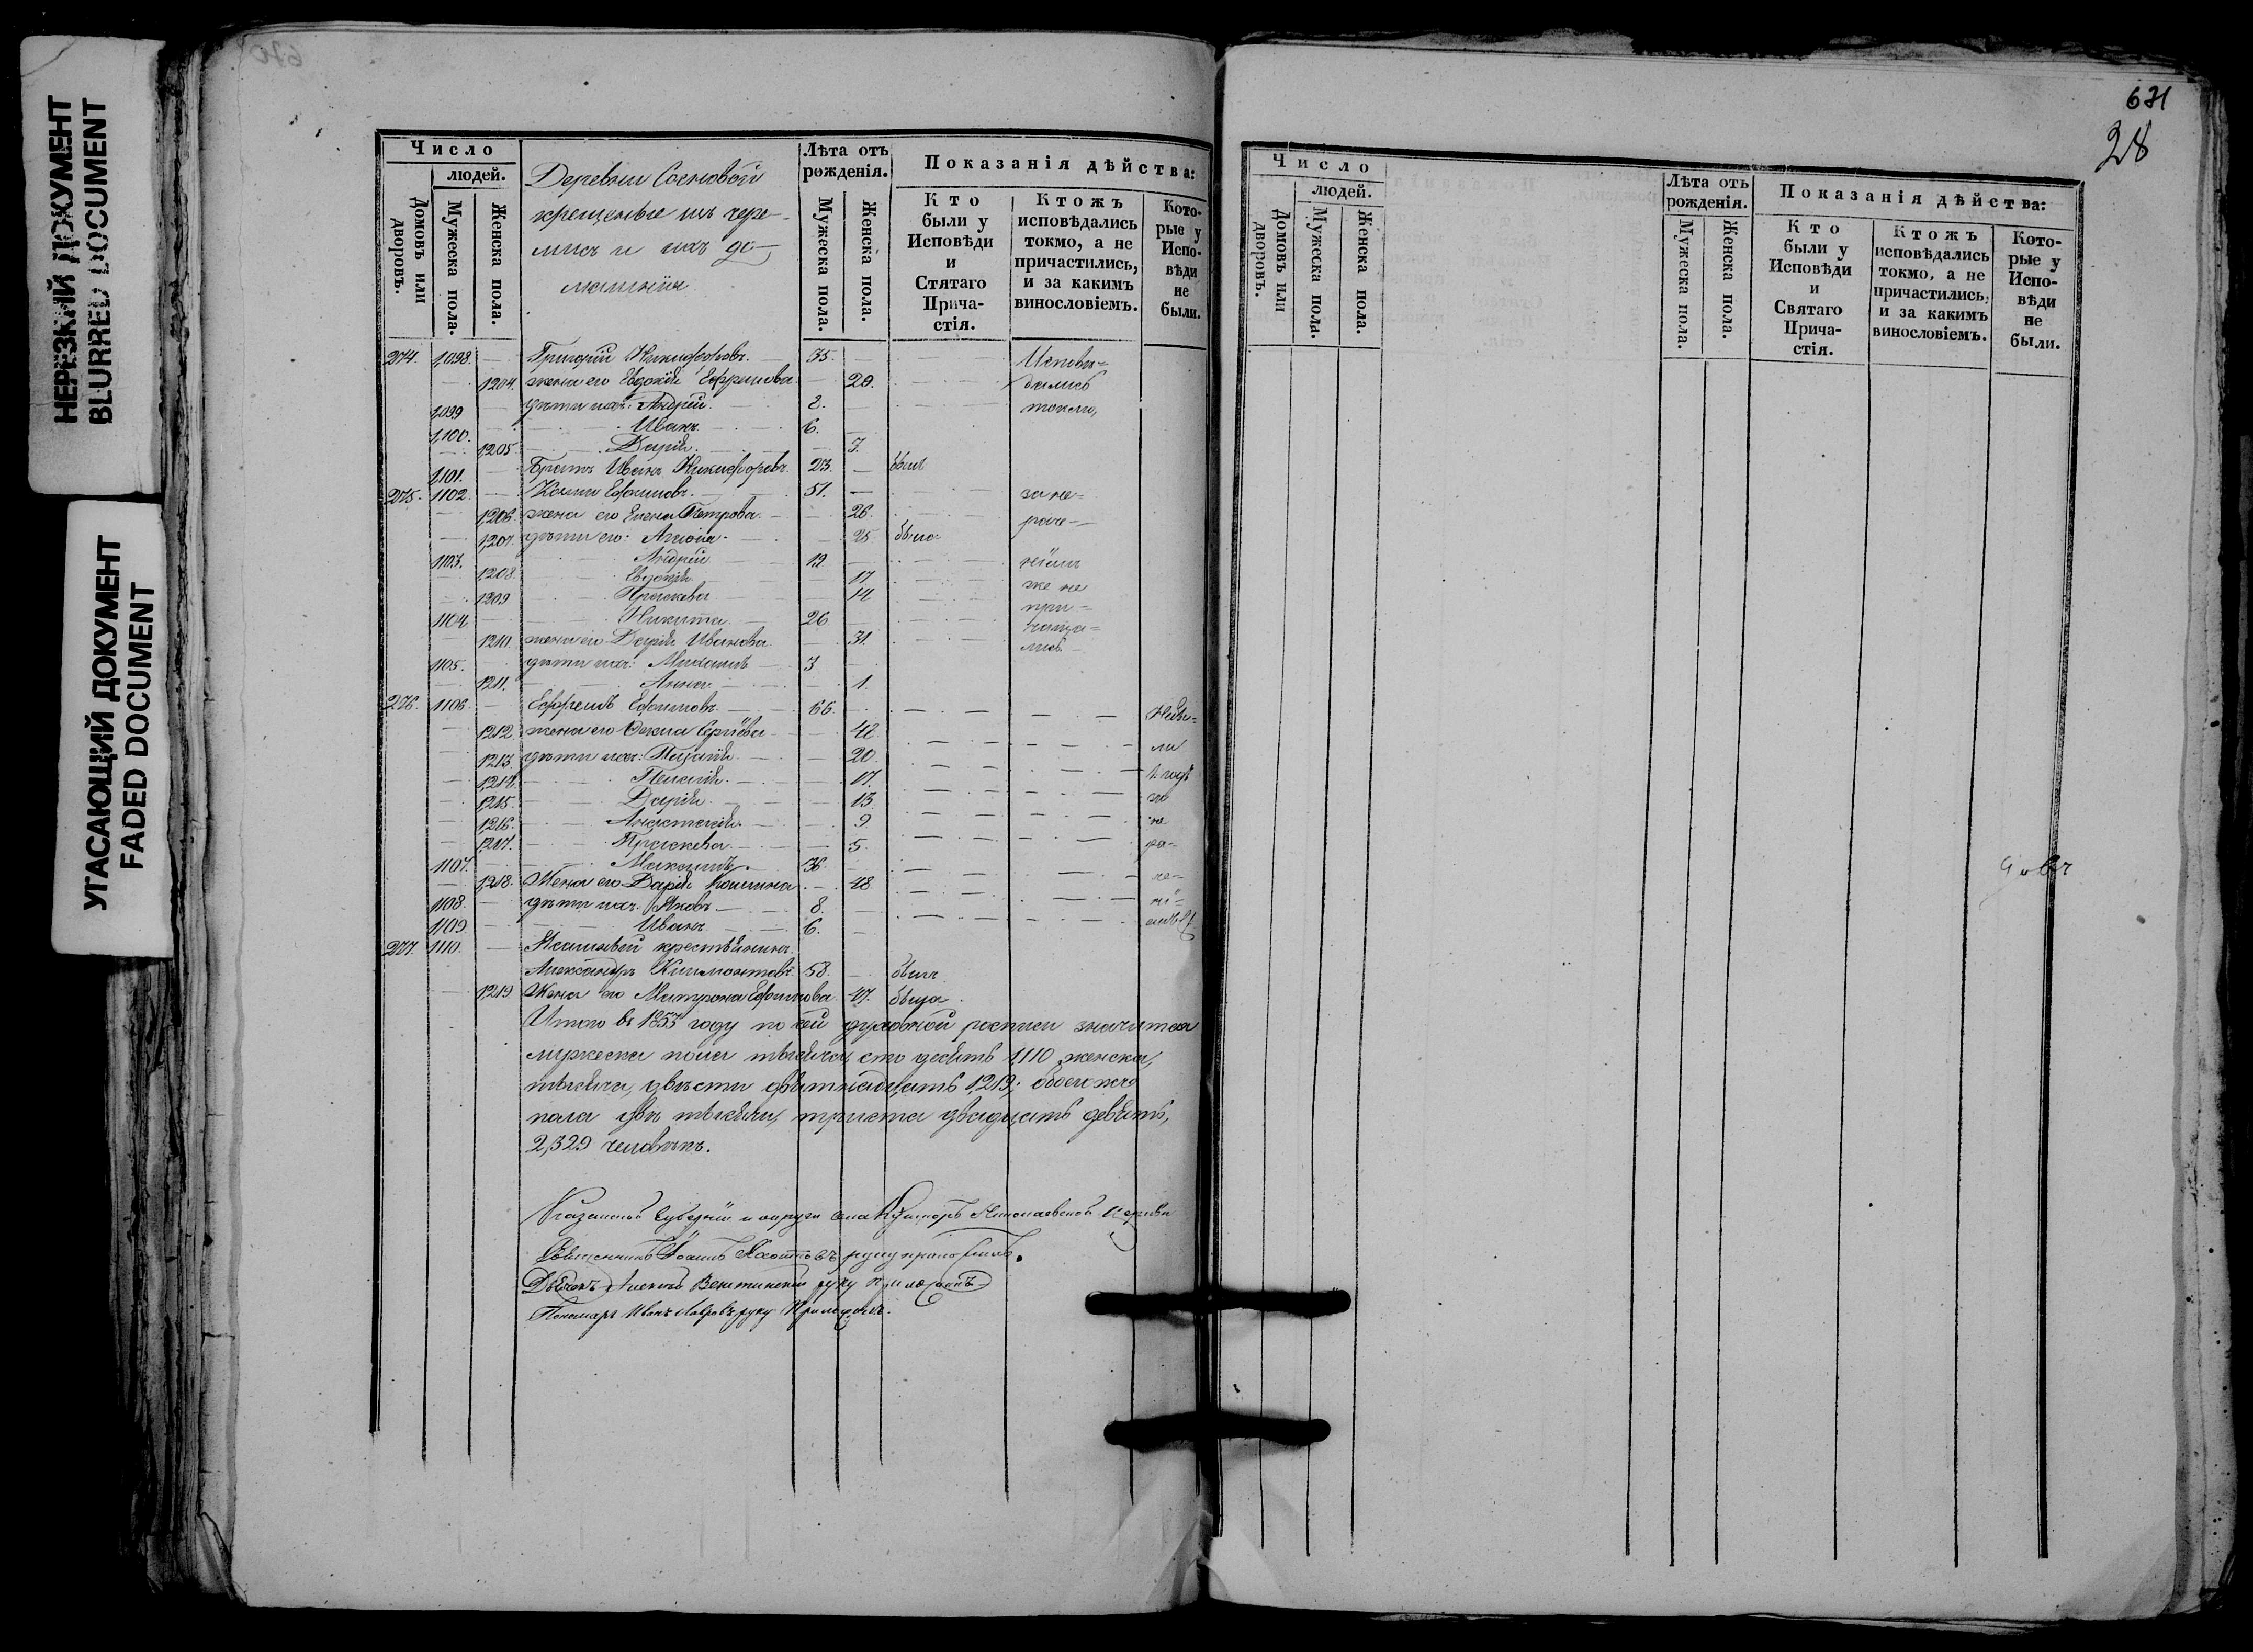 НЕРЕЗКИЙ ДОКУМЕНТ
BLURRED DOCUMENT
УГАСАЮЩИЙ ДОКУМЕНТ
FADED DOCUMENT
Число
людей.
Домовъ или дворовъ.
Мужеска пола.
Женска пола.
Деревни Сосновой
крещеные изъ чере-
мисъ и ихъ до-
машнiи
Лѣта отъ рожденія.
Мужеска пола.
Женска пола.
Показанія дѣйства:
Кто были у Исповѣди и Стятаго Прича-стія.
Ктожъ исповѣдались токмо, а не причастились, и за какимъ винословіемъ.
Кото-рые у Испо-вѣди не были.
274. 1,098. — Григорій Никифоровъ. 35. — Исповѣ-
— 1204. жена его Евдокія Ефремова — 29. дались
1,099 — дѣти ихъ: Андрей. 2. — токмо,
1,100. — Иванъ 6. —
— 1205. Дарія — 7.
1,101. — Братъ Иванъ Никифоровъ. 23. — былъ
275. 1102. — Ефимовъ. 51. — за не-
— 1,206. жена его Елена Петрова. — 26. раче-
— 1,207. дѣти его: — 25 была
1103. Андрей 19 — нiемъ
1,208. Евдокія 17. же не
1209 Праскева 14 при-
1104 Никита 26 чаща-
1210. жена его Дарія Иванова 31. лись
1105. дѣти ихъ: Михаилъ 3 —
1211. Анна 1.
276. 1106. — Ефремъ Ефимовъ 66. Небы-
1212. жена его Фекла 42. ли
1213. дѣти ихъ: 20.
1,214. Пелагія 17.
1215. Дарія 13. за
1216. Анастасія 9. не
1217. Праскева 5. ра-
1107. Максимъ 36. —
— 1218. Жена его Дарія 48. че-
1108. — дѣти ихъ: Яковъ 8. — нi-
1109. Иванъ 6. — емъ
277. 1110. — крестьянинъ
Александръ 58. — былъ
— 1,219 Жена его Матрона Ефимова 47. была
Итого въ 1855 году по сей духовной росписи значится
мужеска пола тысяча, сто десять 1,110 женска,
тысяча, двѣсти девятнадцать 1,219; обоего же
пола двѣ тысячи, триста двадцать девять,
2,329 человѣкъ.
Казанской Губерніи и округи села Николаевской Церкви
Священникъ Іоаннъ руку приложилъ.
Дьячекъ Алексей руку приложилъ
Пономарь Иванъ Лавровъ руку Приложилъ.
631
28
Число
людей.
Домовъ или дворовъ.
Мужеска пола.
Женска пола.
Лѣта отъ рожденія.
Мужеска пола.
Женска пола.
Показанія дѣйства:
Кто были у Исповѣди и Святаго Прича-стія.
Ктожъ исповѣдались токмо, а не причастились, и за какимъ винословіемъ.
Кото-рые у Испо-вѣди не были.